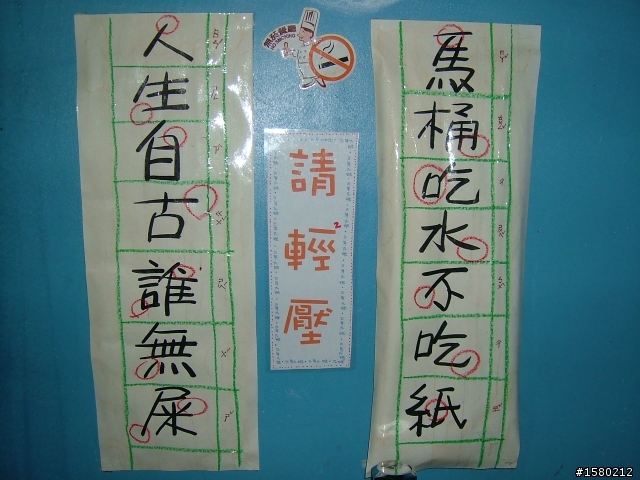 人生自古誰無屎
請輕壓
馬桶吃水不吃紙
#1580212